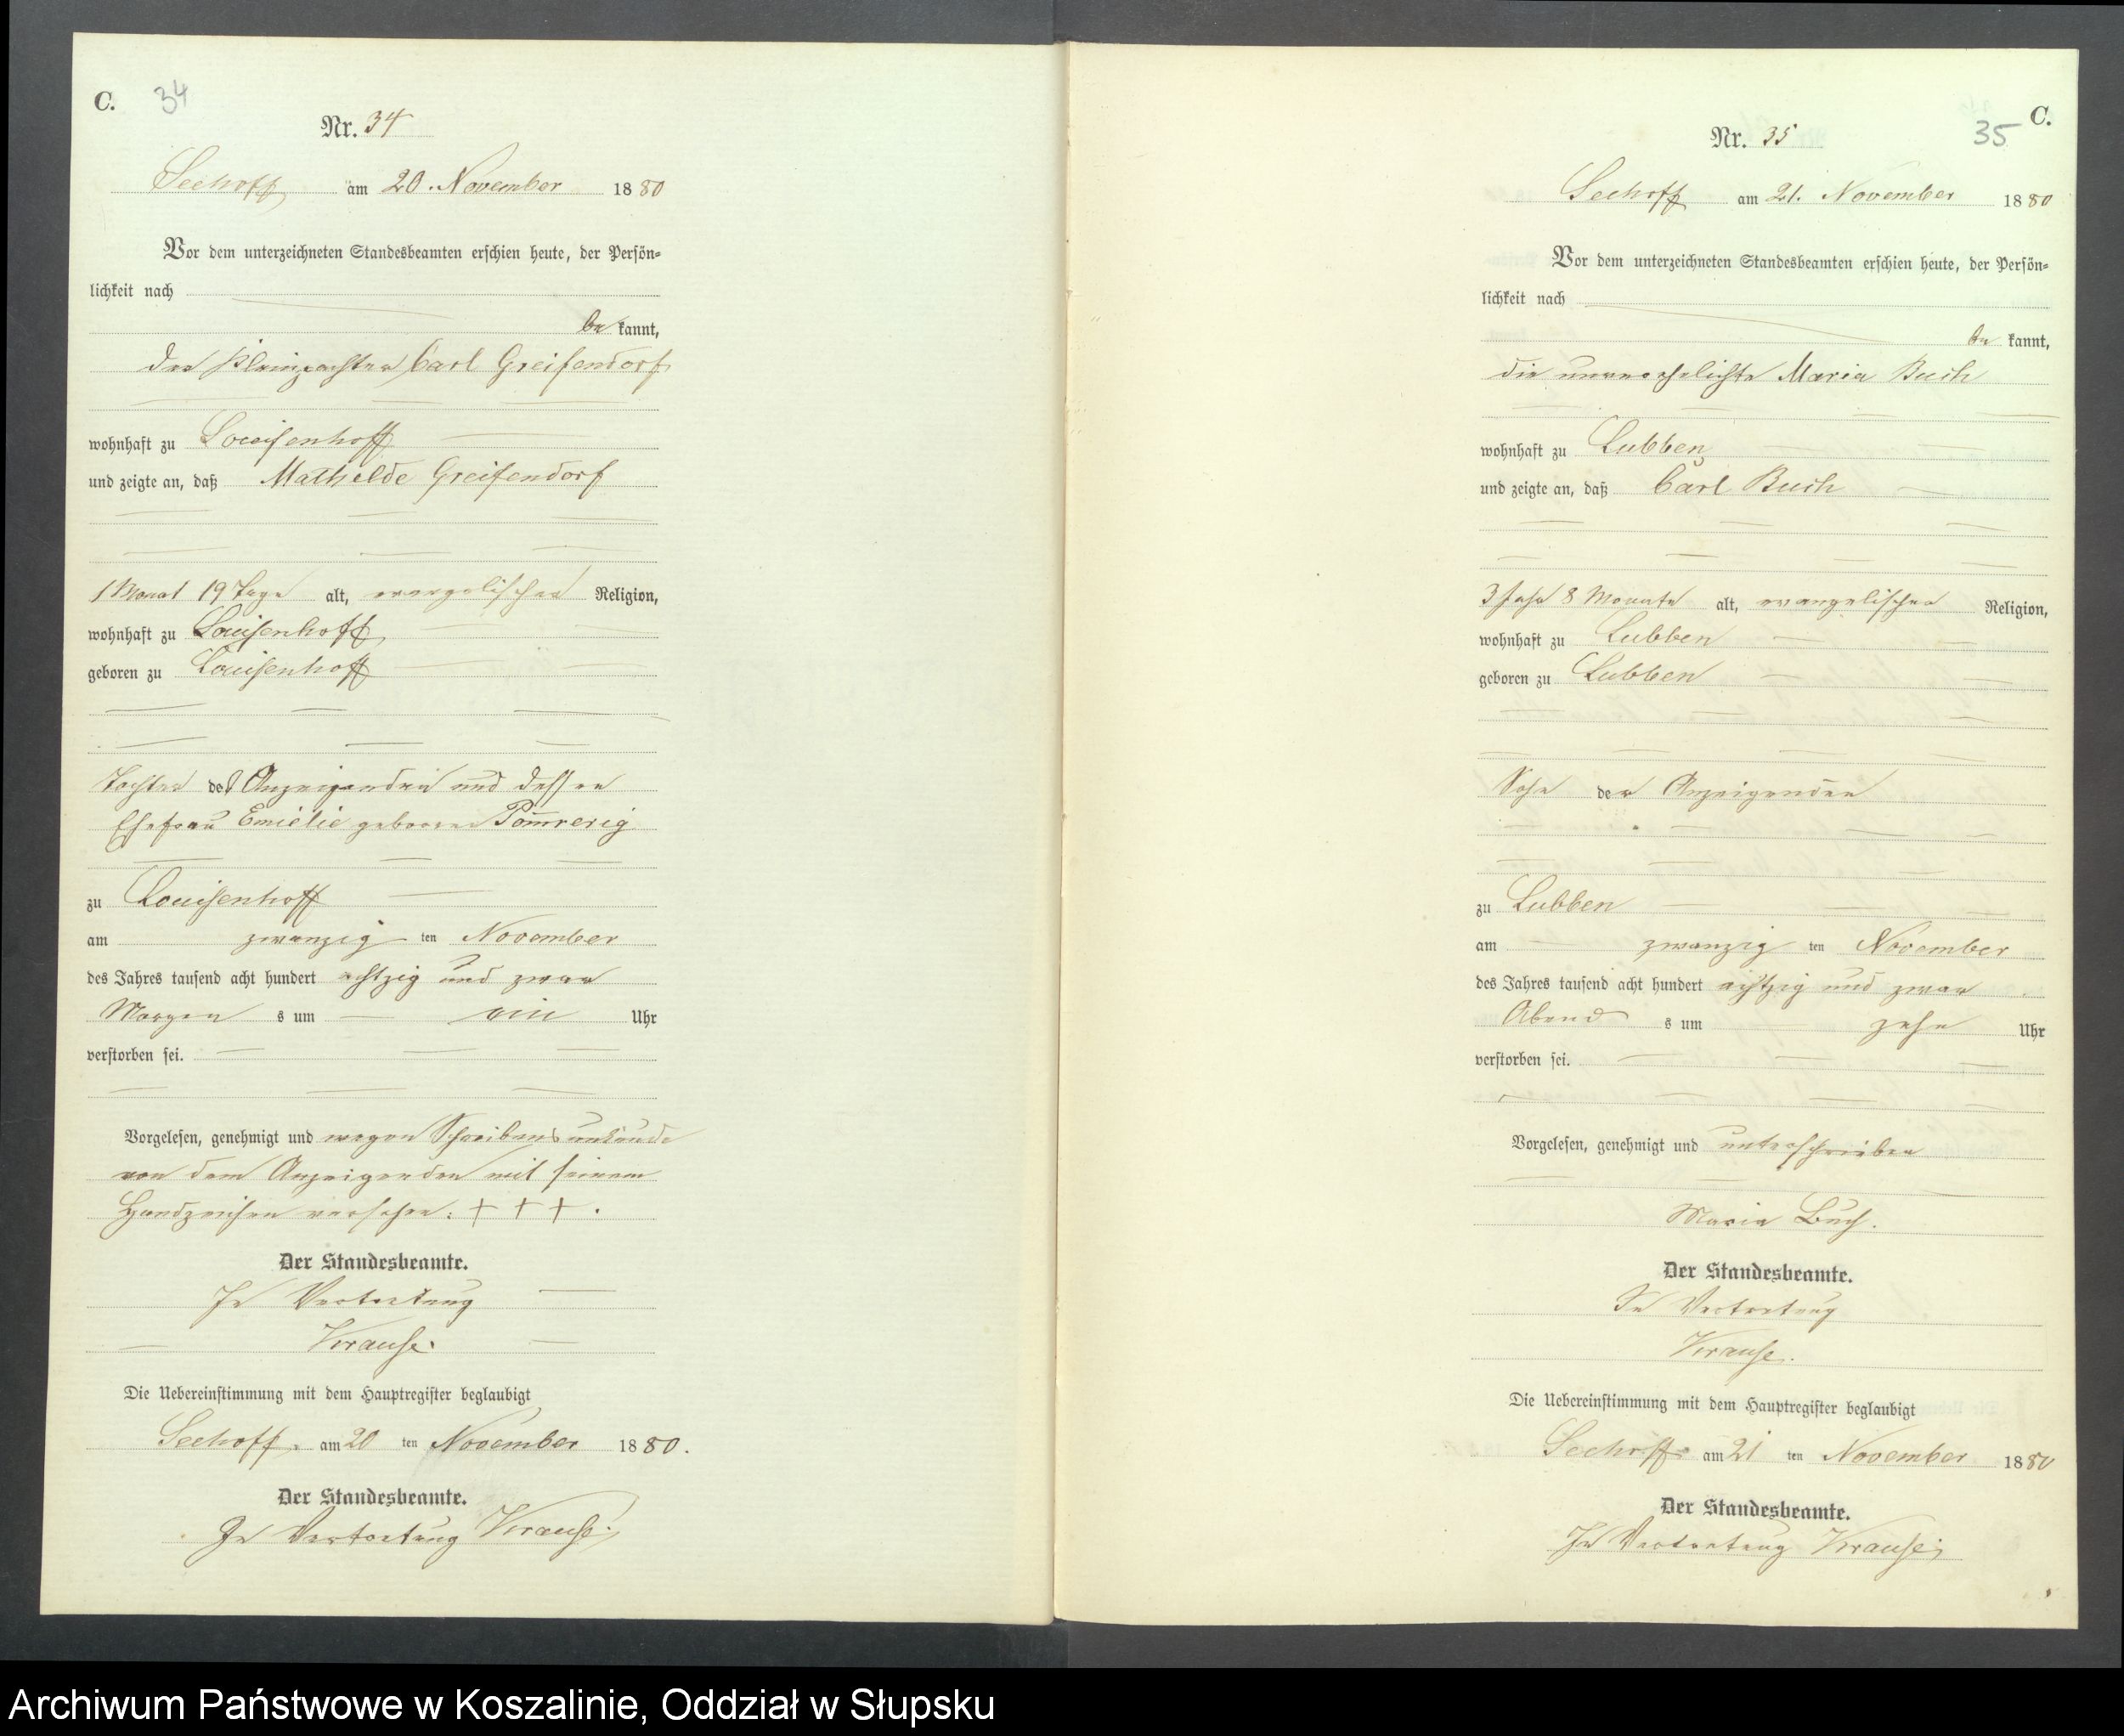 C. 34
Nr. 34
Seehoff am 20. November 1880
Vor dem unterzeichneten Standesbeamten erschien heute, der Persön-
lichkeit nach
be kannt,
der Kleinpachter Carl Greifendorf
wohnhaft zu Louisenhoff
und zeigte an, daß Mathelde Greifendorf
1 Monat 19 Tage alt, evangelischer Religion,
wohnhaft zu Louisenhoff
geboren zu Louisenhoff
Tochter des Anzeigenden und dessen
Ehefrau Emielie geborene Pom̅rerig
zu Louisenhoff
am zwanzig ten November
des Jahres tausend acht hundert achtzig und zwar
Morgen s um ein Uhr
verstorben sei.
Vorgelesen, genehmigt und wegen Schreibensunkunde
von dem Anzeigenden mit seinem
Handzeichen versehen: + + + .
Der Standesbeamte.
In Vertretung
Krause.
Die Uebereinstimmung mit dem Hauptregister beglaubigt
Seehoff. am 20 ten November 1880.
Der Standesbeamte.
In Vertretung Krause.
C.
35
Nr. 35
Seehoff am 21. November 1880
Vor dem unterzeichneten Standesbeamten erschien heute, der Persön-
lichkeit nach
be kannt,
die unverehelichte Maria Buch
wohnhaft zu Lubben
und zeigte an, daß Carl Buch
3 Jahr 8 Monate alt, evangelischer Religion,
wohnhaft zu Lubben
geboren zu Lubben
Sohn der Anzeigenden
zu Lubben
am zwanzig ten November
des Jahres tausend acht hundert achtzig und zwar
Abend s um zehn Uhr
verstorben sei.
Vorgelesen, genehmigt und unterschrieben
Maria Buch.
Der Standesbeamte.
In Vertretung
Krause.
Die Uebereinstimmung mit dem Hauptregister beglaubigt
Seehoff am 21 ten November 1880
Der Standesbeamte.
In Vertretung Krause.
Archiwum Państwowe w Koszalinie, Oddział w Słupsku